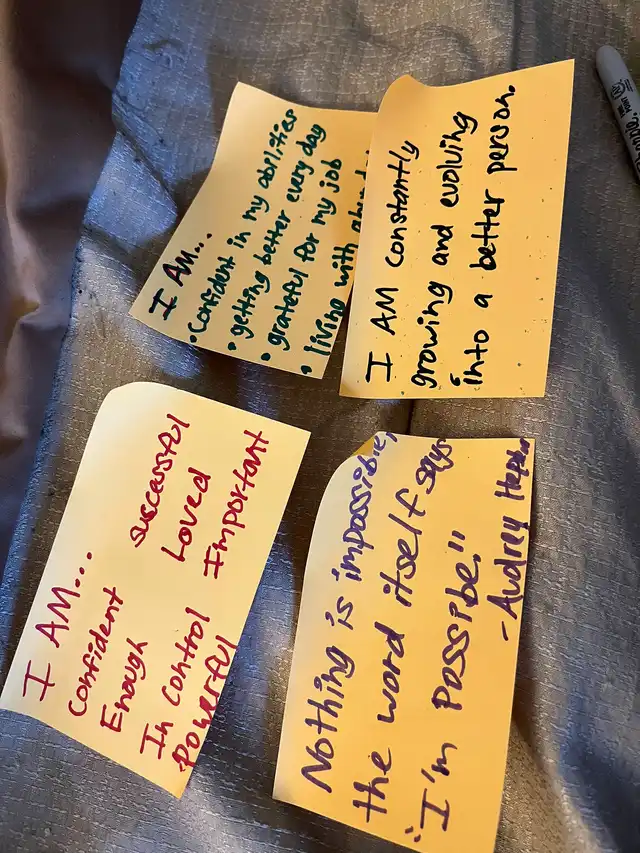 I AM...
• Confident in my abilities
• getting better every day
• grateful for my job
• living with
I AM constantly
growing and evolving
into a better person.
I AM...
Confident
Enough
In Control
Powerful
successful
Loved
Important
Nothing is impossible,
the word itself says
"I'm possibe."
- Audrey